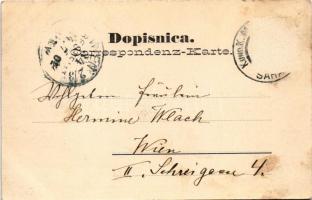 Dopisnica.
Correspondenz-Karte.
SARA
Fräulein
Hermine Wlach
Wien
II. Schreigasse 4.